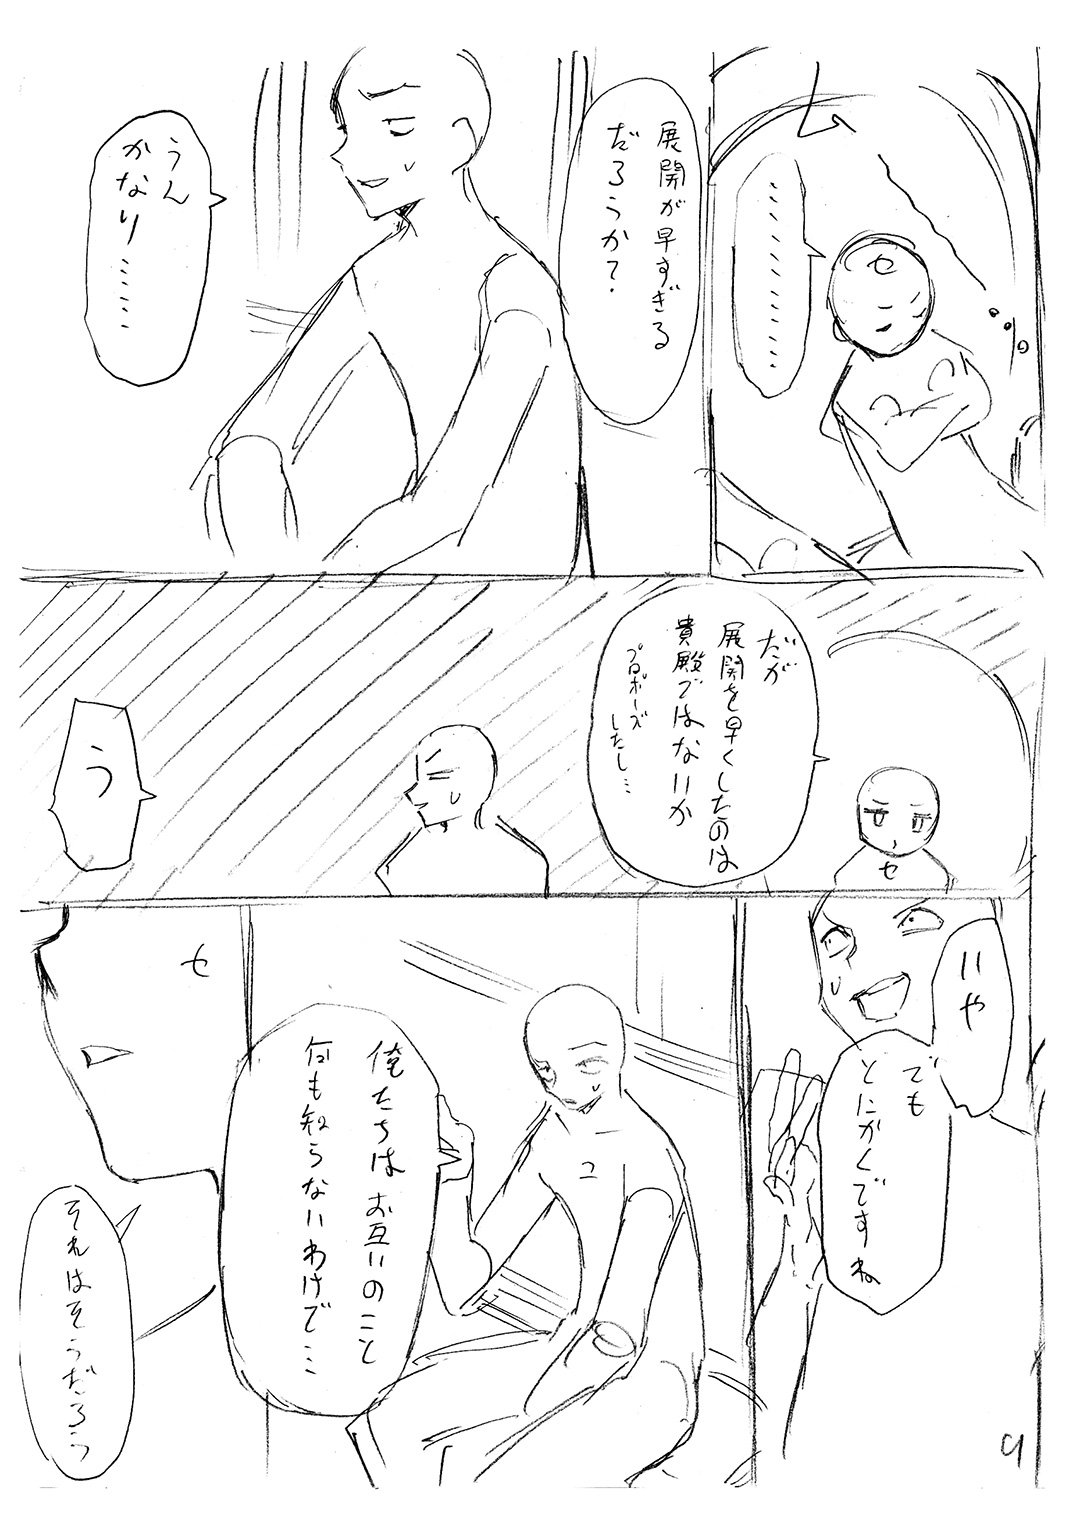 セ
…………
展開が早すぎる
だろうか？
うん
かなり……
だが
展開を早くしたのは
貴殿ではないか
プロポーズ
したし…
セ
う
いや
でも
とにかくですね
ユ
俺たちはお互いのこと
何も知らないわけで…
セ
それはそうだろう
9